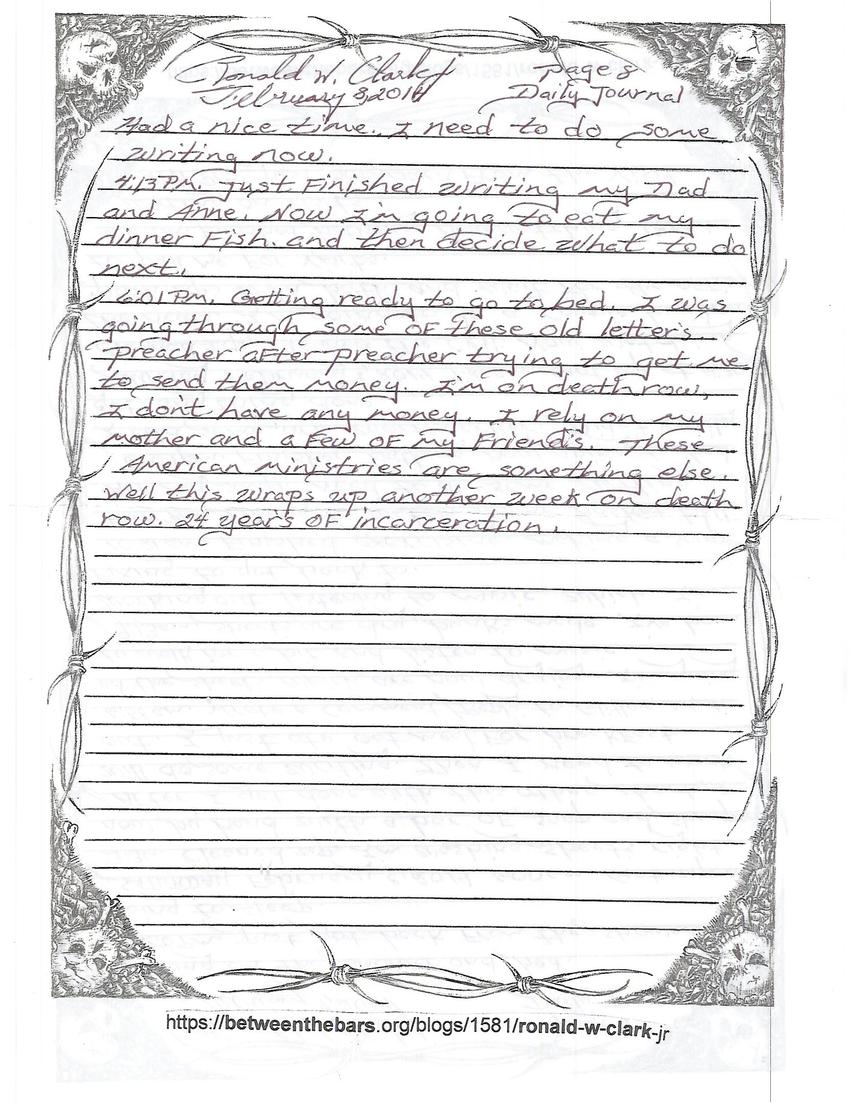 Ronald W. Clark Jr page 8
February 8, 2016 Daily Journal
Had a nice time. I need to do some
writing now.
4:13 PM. Just Finished writing my Dad
and Anne. Now I'm going to eat my
dinner Fish. and then decide what to do
next.
6:01 PM. Getting ready to go to bed. I was
going through some OF these old letter's.
Preacher aFter preacher trying to get me
to send them money. I'm on death row,
I don't have any money. I rely on my
mother and a Few OF my Friend's. These
American ministries are something else.
Well this wraps up another week on death
row. 24 year's OF incarceration.
https://betweenthebars.org/blogs/1581/ronald-w-clark-jr